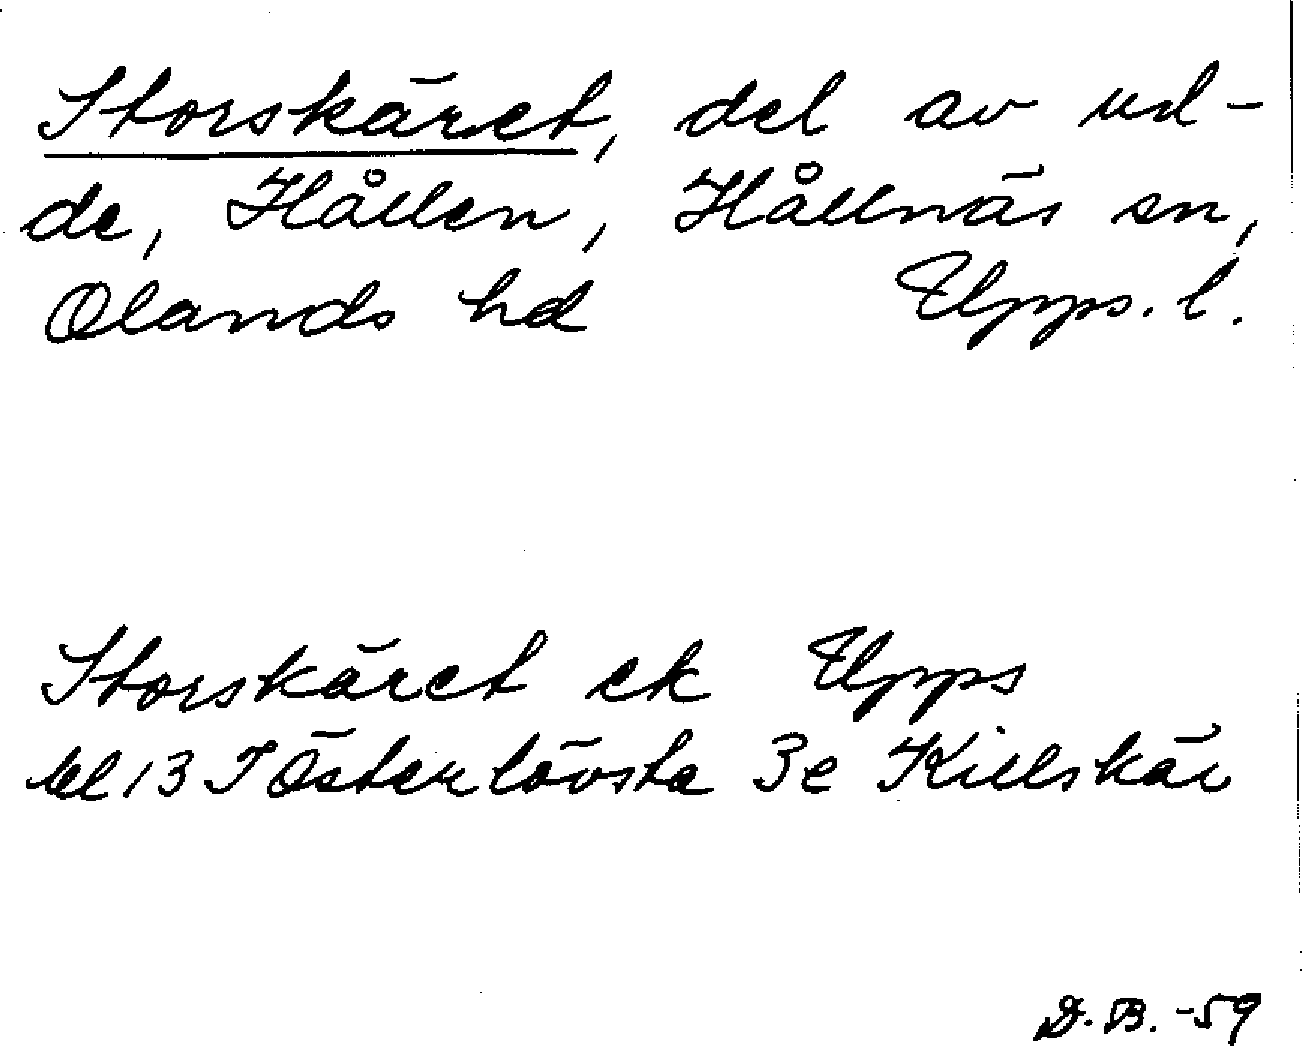 Storskäret, del av ud-
de, Hållen, Hållnäs sn,
Olands hd Upps. l.
Storskäret ek Upps
bl 13 I Österlövsta 3e Killskär
D.B. -59